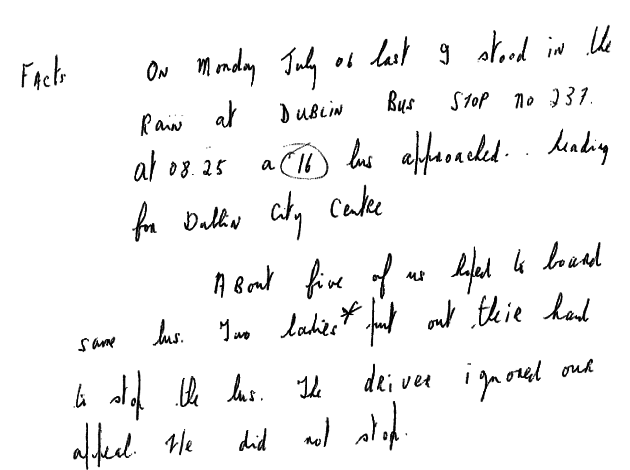 Facts On Monday July 06 last I stood in the
Rain at DUBLIN Bus STOP no 237.
at 08.25 a 16 bus approached.. heading
for Dublin City Centre
About five of us hoped to board
same bus. Two ladies* put out their hand
to stop the bus. The driver ignored our
appeal. He did not stop.